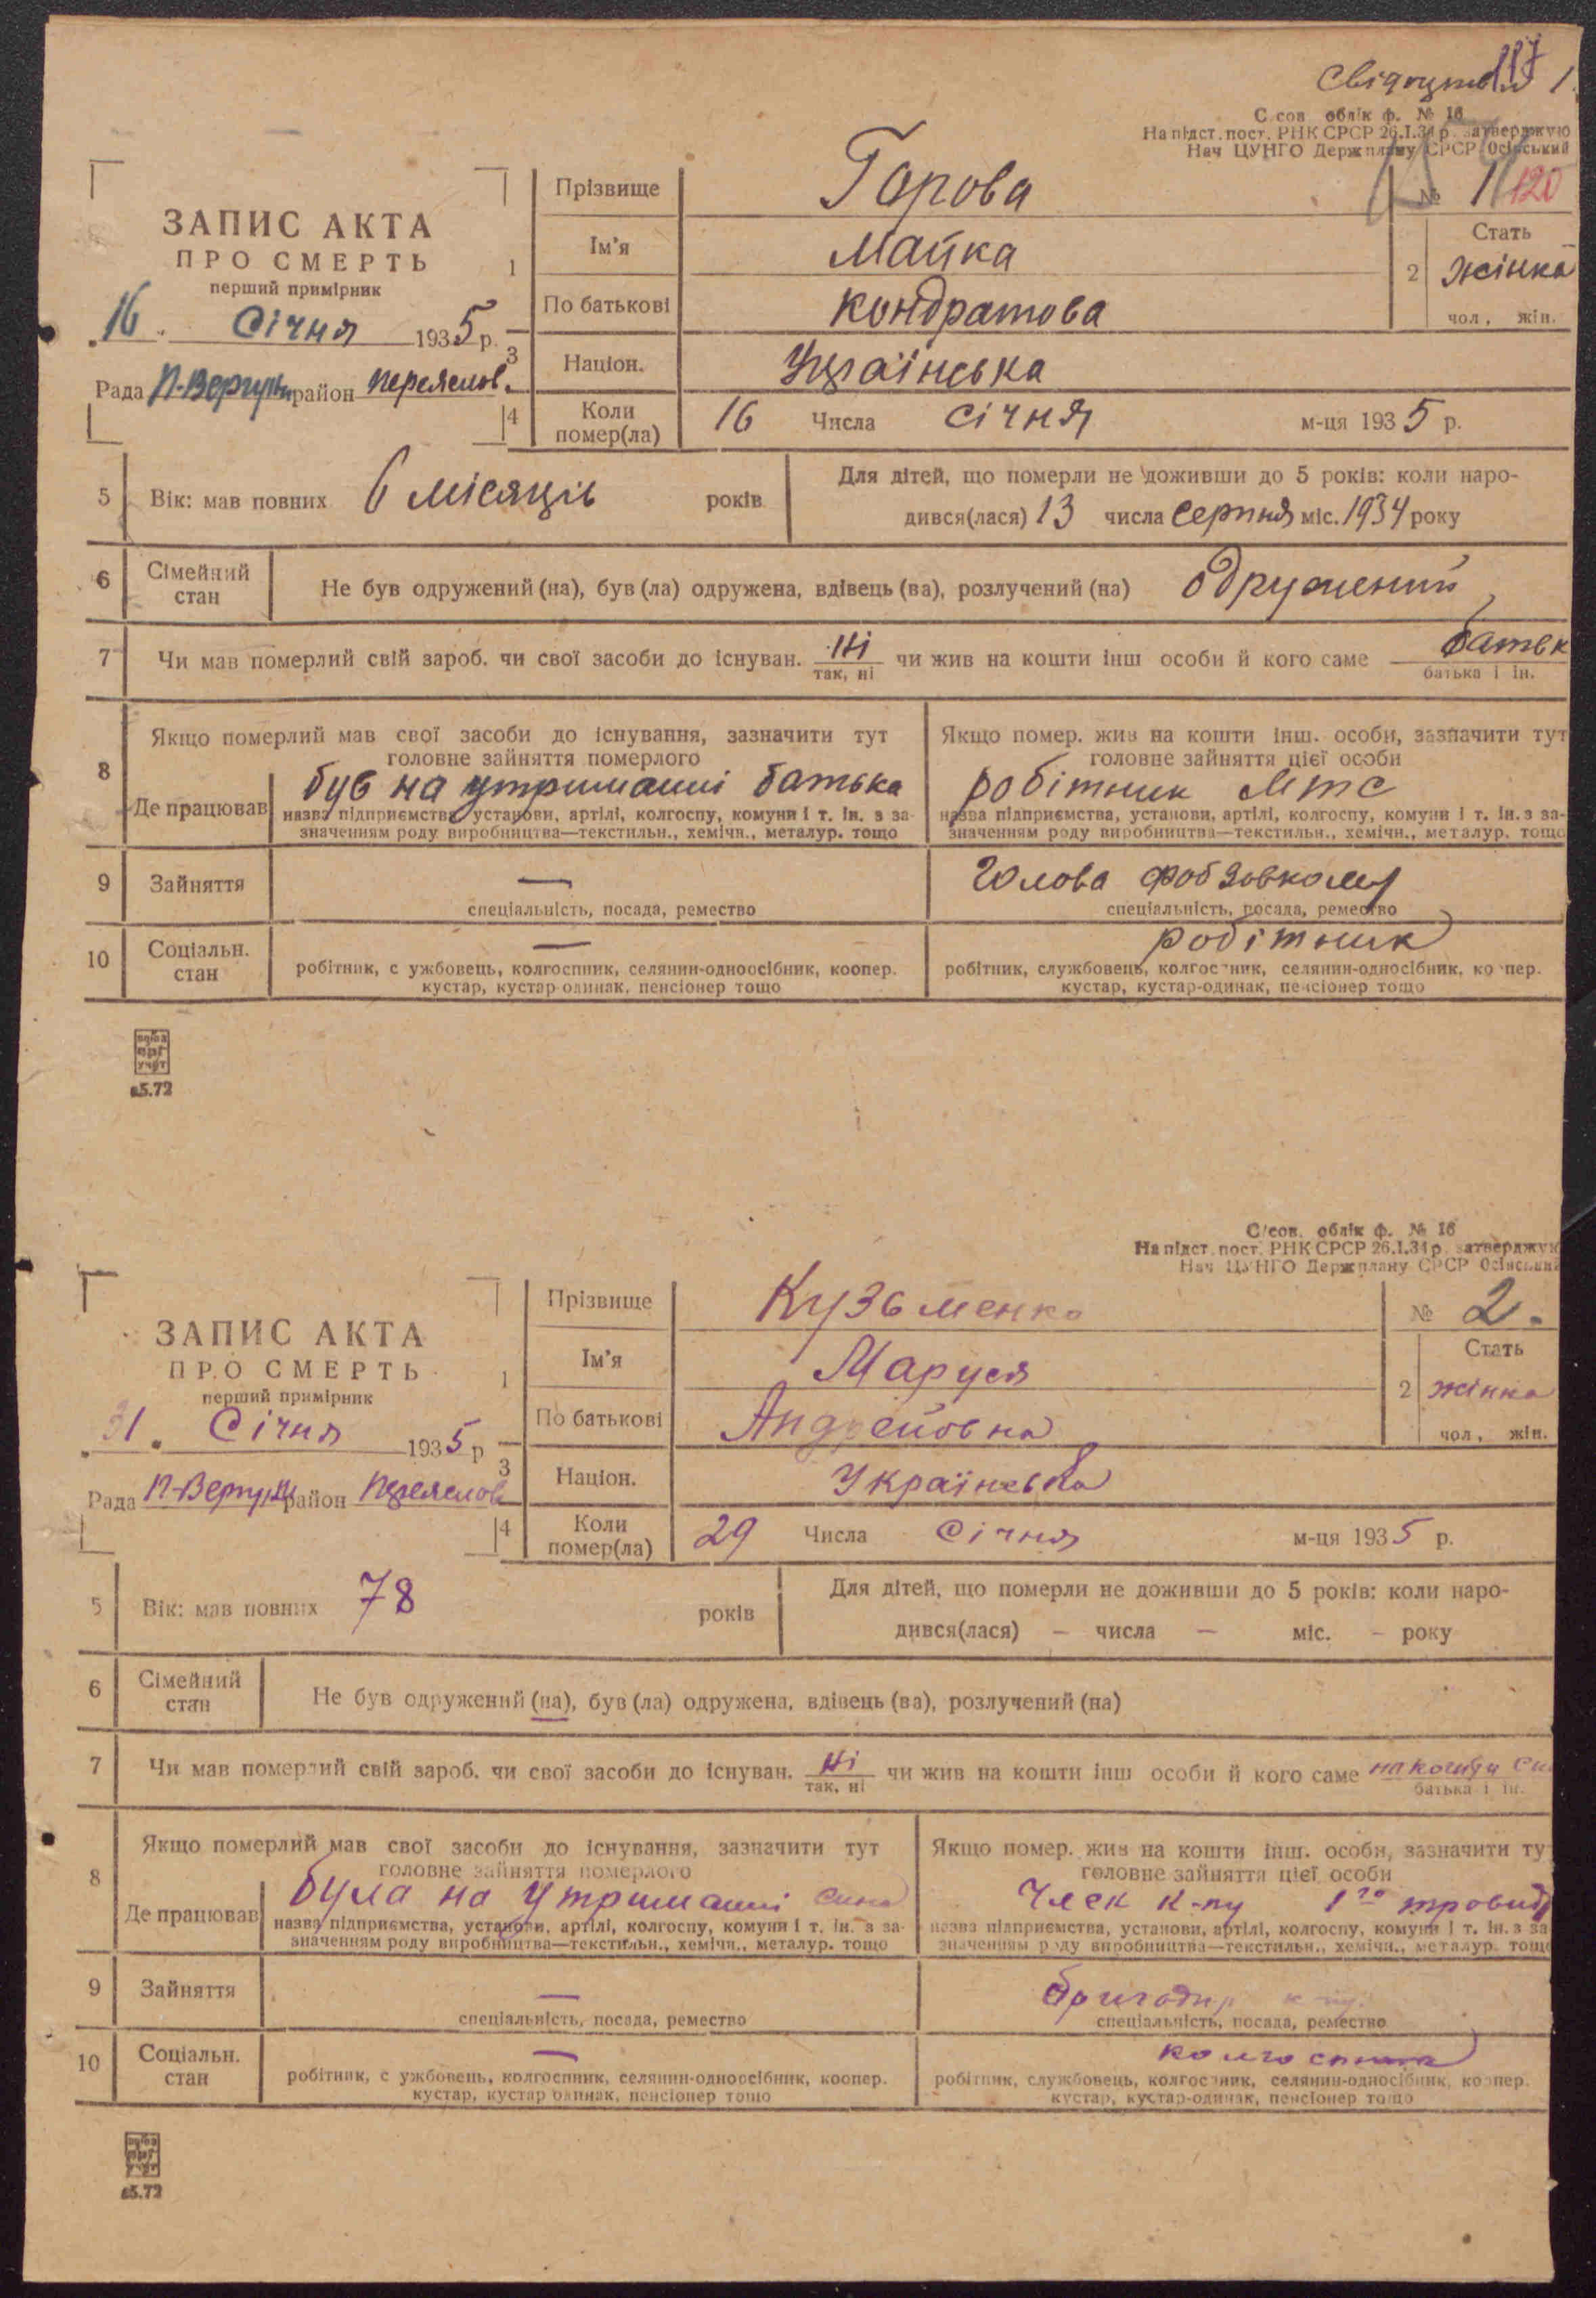 117
С.сов облік ф. № 16
На підст. пост. РНК СРСР 26.І.34 р. затверджую
Нач ЦУНГО Держплану СРСР Осінський
Прізвище Горова № 1 120
ЗАПИС АКТА
ПРО СМЕРТЬ
перший примірник
1 Ім'я Майка
2 Стать жінка
чол, жін.
По батькові Кондратова
16. Січня 1935 р.
3 Націон. Українська
Рада П-Вергуни район Переяслов.
4 Коли помер(ла) 16 Числа Січня м-ця 1935 р.
5 Вік: мав повних 6 місяців років
Для дітей, що померли не доживши до 5 років: коли наро-
дився(лася) 13 числа Серпня міс. 1934 року
6 Сімейний стан Не був одружений (на), був (ла) одружена, вдівець (ва), розлучений (на) одружений
7 Чи мав померлий свій зароб. чи свої засоби до існуван. Ні чи жив на кошти інш особи й кого саме батьк
так, ні батька і ін.
8 Якщо померлий мав свої засоби до існування, зазначити тут
головне зайняття померлого
Якщо помер. жив на кошти інш. особи, зазначити тут
головне зайняття цієї особи
Де працював був на утриманні батька
робітник Мтс
назва підприємства, установи, артілі, колгоспу, комуни і т. ін. з за-
значенням роду виробництва—текстильн., хемічн., металур. тощо
назва підприємства, установи, артілі, колгоспу, комуни і т. ін. з за-
значенням роду виробництва—текстильн., хемічн., металур. тощо
9 Зайняття —
Голова
спеціальність, посада, ремество
спеціальність, посада, ремество
10 Соціальн. стан —
робітник
робітник, с ужбовець, колгоспник, селянин-одноосібник, коопер.
кустар, кустар одинак, пенсіонер тощо
робітник, службовець, колгос ник, селянин-односібник, ко пер.
кустар, кустар-одинак, пенсіонер тощо
а5.72
С/сов. облік ф. № 16
На підст. пост. РНК СРСР 26.І.34 р. затверджую
Нач ЦУНГО Держплану СРСР Осінський
Прізвище Кузьменко № 2.
ЗАПИС АКТА
ПРО СМЕРТЬ
перший примірник
1 Ім'я Маруся
2 Стать жінка
чол, жін.
По батькові Андрейовна
31. Січня 1935 р
3 Націон. Українська
Рада П-Вергуни район Переяслов
4 Коли помер(ла) 29 Числа Січня м-ця 1935 р.
5 Вік: мав повних 78 років
Для дітей, що померли не доживши до 5 років: коли наро-
дився(лася) – числа – міс. – року
6 Сімейний стан Не був одружений (на), був (ла) одружена, вдівець (ва), розлучений (на)
7 Чи мав померлий свій зароб. чи свої засоби до існуван. Ні чи жив на кошти інш особи й кого саме на кошти си
так, ні батька і ін.
8 Якщо померлий мав свої засоби до існування, зазначити тут
головне зайняття померлого
Якщо помер. жив на кошти інш. особи, зазначити ту
головне зайняття цієї особи
Де працював була на утриманні сина
Член к-пу
назва підприємства, установи, артілі, колгоспу, комуни і т. ін. з за-
значенням роду виробництва—текстильн., хемічн., металур. тощо
назва підприємства, установи, артілі, колгоспу, комуни і т. ін. з за
значенням роду виробництва—текстильн., хемічн., металур. тощо
9 Зайняття —
бригадир
спеціальність, посада, ремество
спеціальність, посада, ремество
10 Соціальн. стан —
колгоспник
робітник, с ужбовець, колгоспник, селянин-одноосібник, коопер.
кустар, кустар одинак, пенсіонер тощо
робітник, службовець, колгос ник, селянин-односібник, коопер.
кустар, кустар-одинак, пенсіонер тощо
а5.72